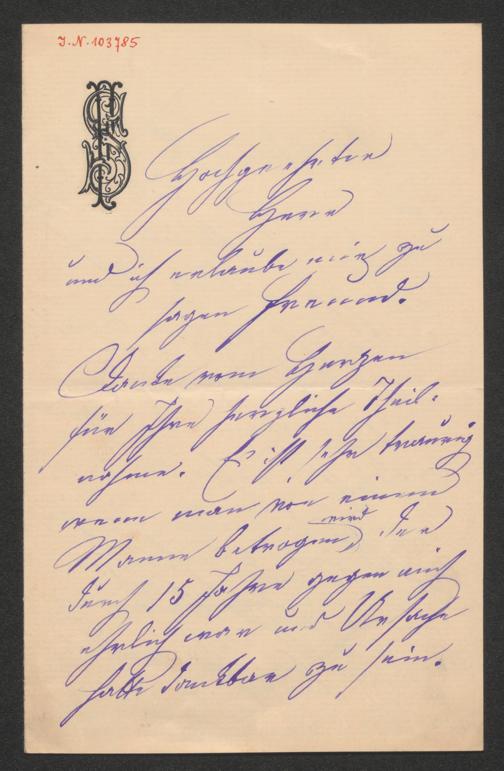 J.N. 103785
Hochgeehrter
Herr
und ich erlaube mir zu
sagen Freund.
Danke vom Herzen
für Ihre herzliche Theil-
nahme. Es ist sehr traurig
wenn man von einem
Manne betrogen wird, der
durch 15 Jahre gegen mich
ehrlich war und Ursache
hatte dankbar zu sein.